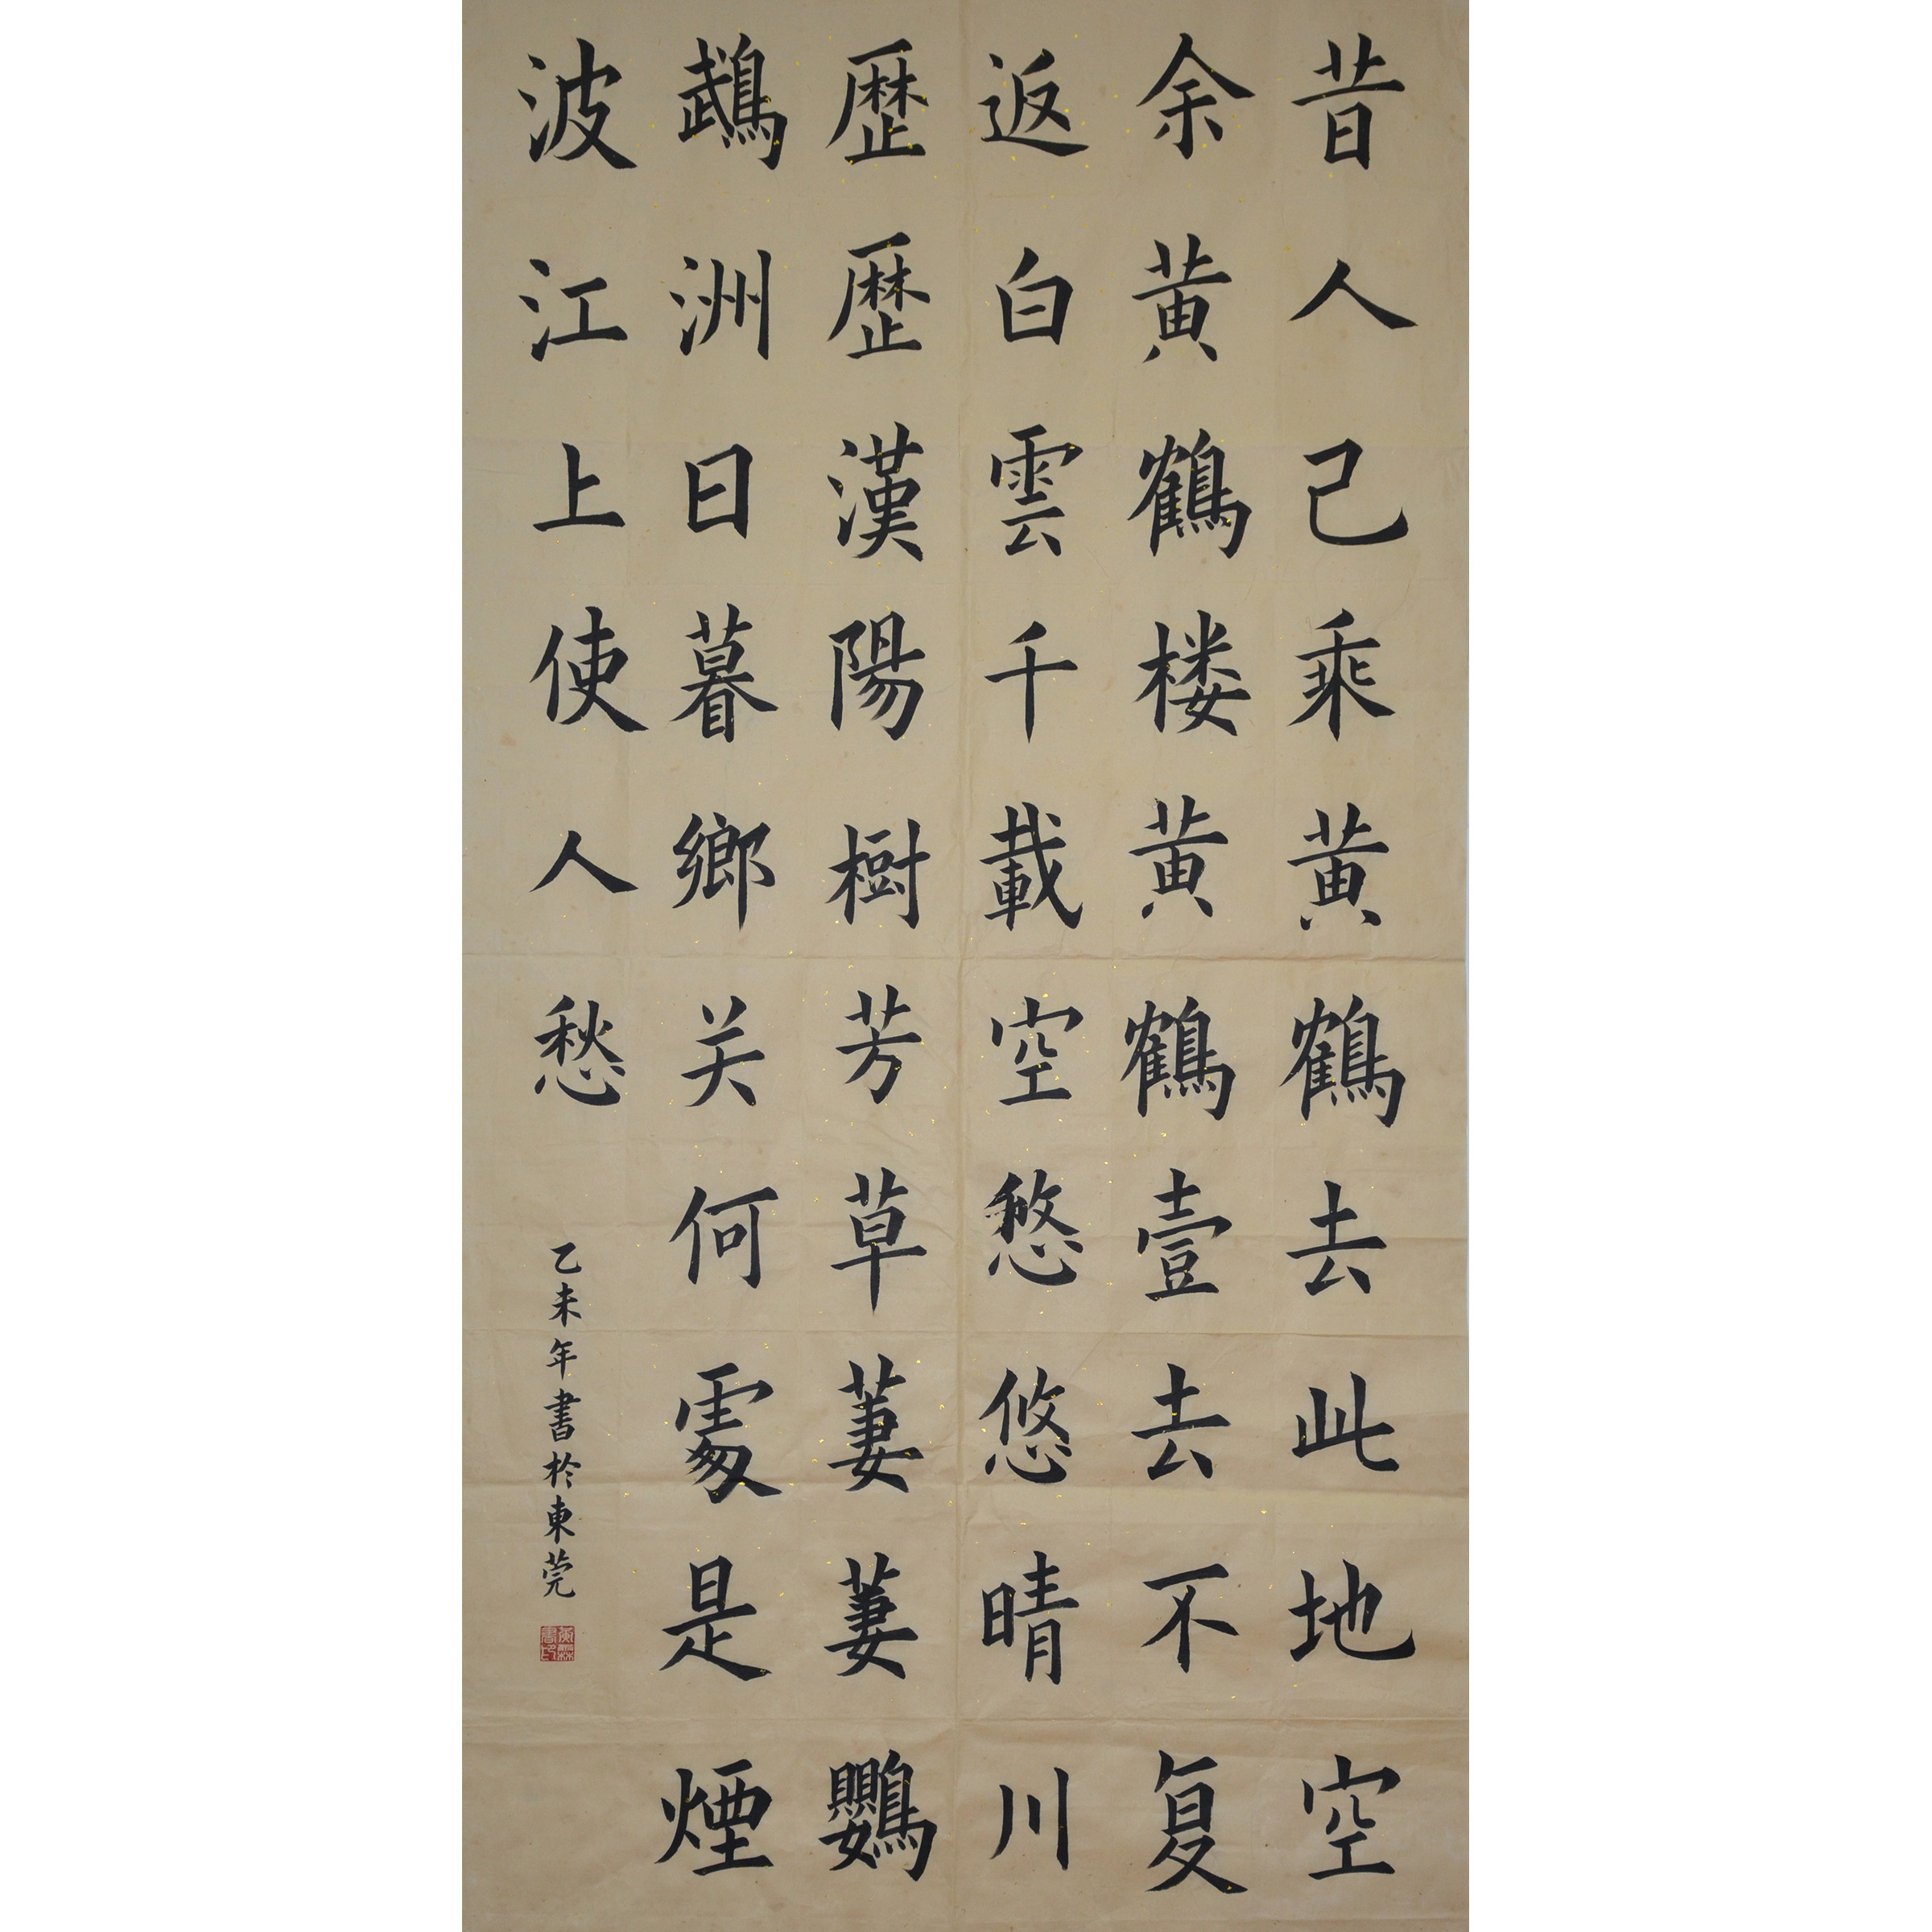 昔人已乘黃鶴去此地空
余黃鶴楼黃鶴壹去不复
返白雲千載空愁悠晴川
歷歷漢陽樹芳草萋萋鸚
鵡洲日暮鄉关何處是煙
波江上使人愁
乙未年書於東莞